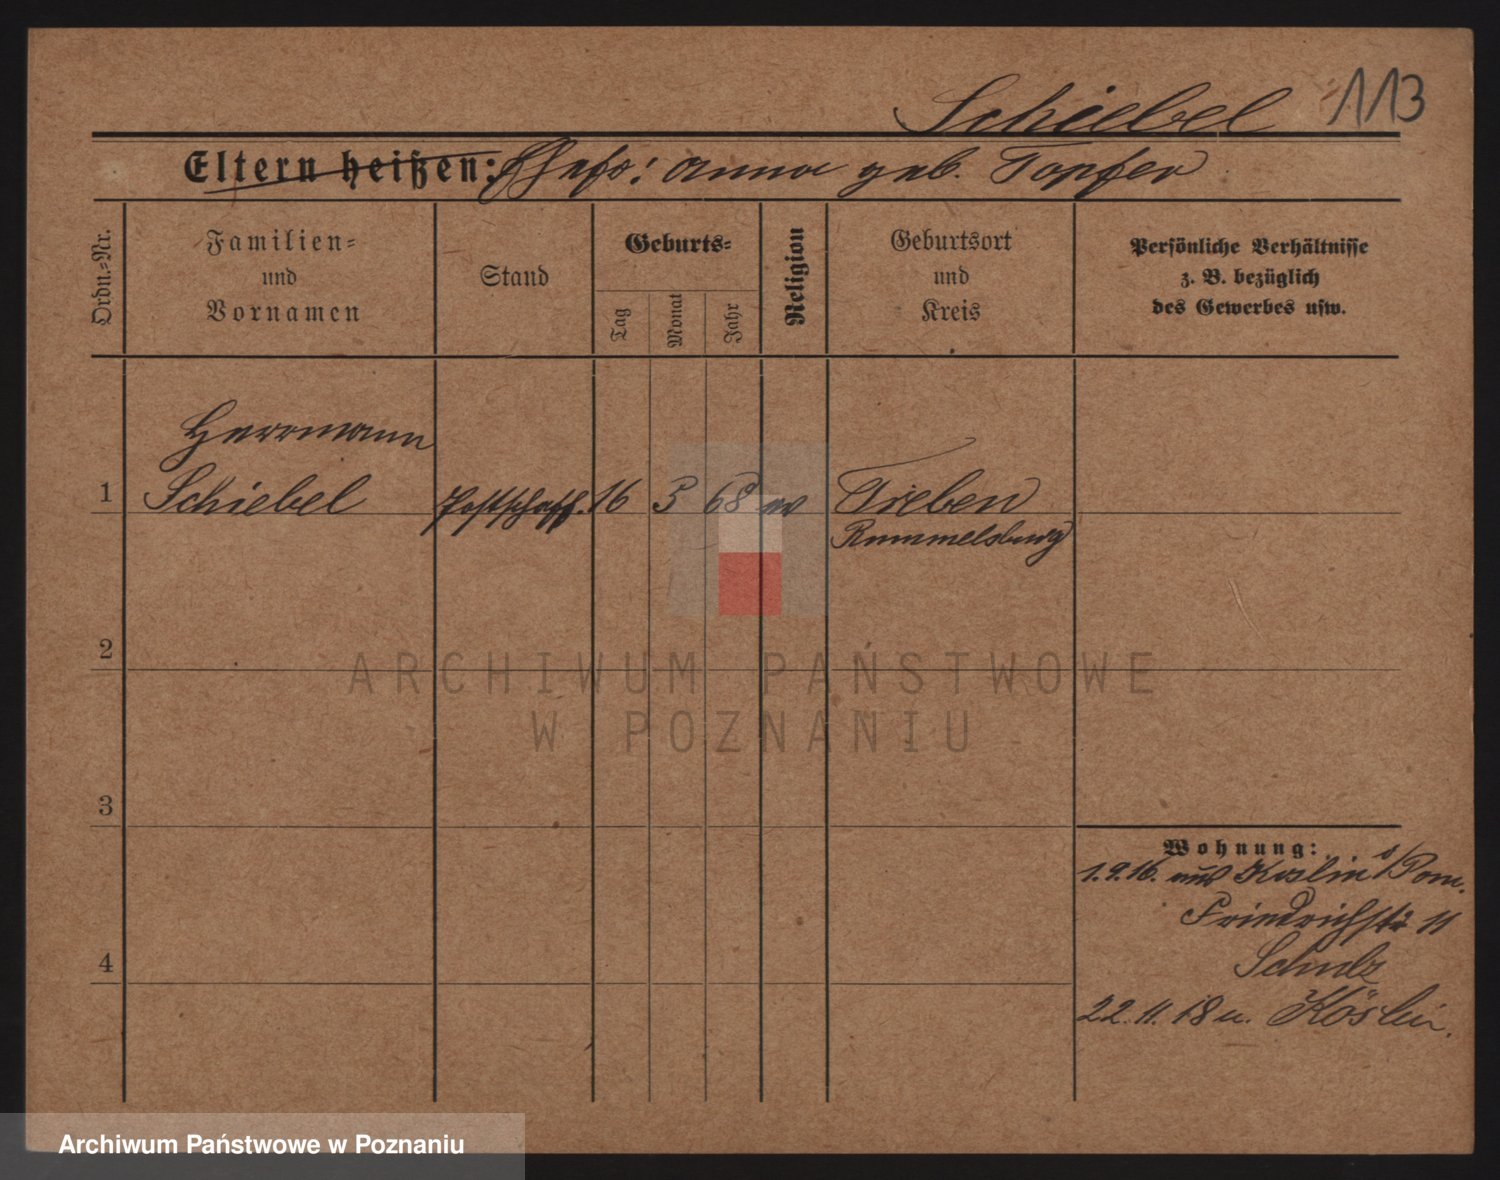 Schiebel 113
Eltern heißen: Ehefr: Anna geb. Topfer
Ordn.-Nr.
Familien-
und
Vornamen
Stand
Geburts-
Tag
Monat
Jahr
Religion
Geburtsort
und
Kreis
Persönliche Verhältnisse
z. B. bezüglich
des Gewerbes usw.
Herrmann
1 Schiebel Postschaff. 16 3 68 ev Treben
Rummelsburg
2
3
4
Wohnung:
1.9.16. aus Köslin i/Pom.
Friedrichstr 11
Schulz
22.11.18 n. Köslin.
ARCHIWUM PAŃSTWOWE
W POZNANIU
Archiwum Państwowe w Poznaniu